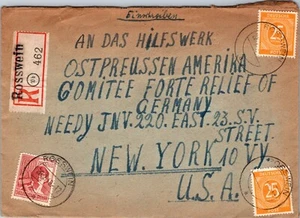 Einschreiben
Rosswein
462
AN DAS HILFSWERK
OSTPREUSSEN AMERIKA
COMITEE FORTE RELIEF OF
GERMANY
NEEDY JNV. 220. EAST. 23. S.V.
STREET.
NEW. YORK 10 VY.
U.S.A.
25
25
ROSSWEIN